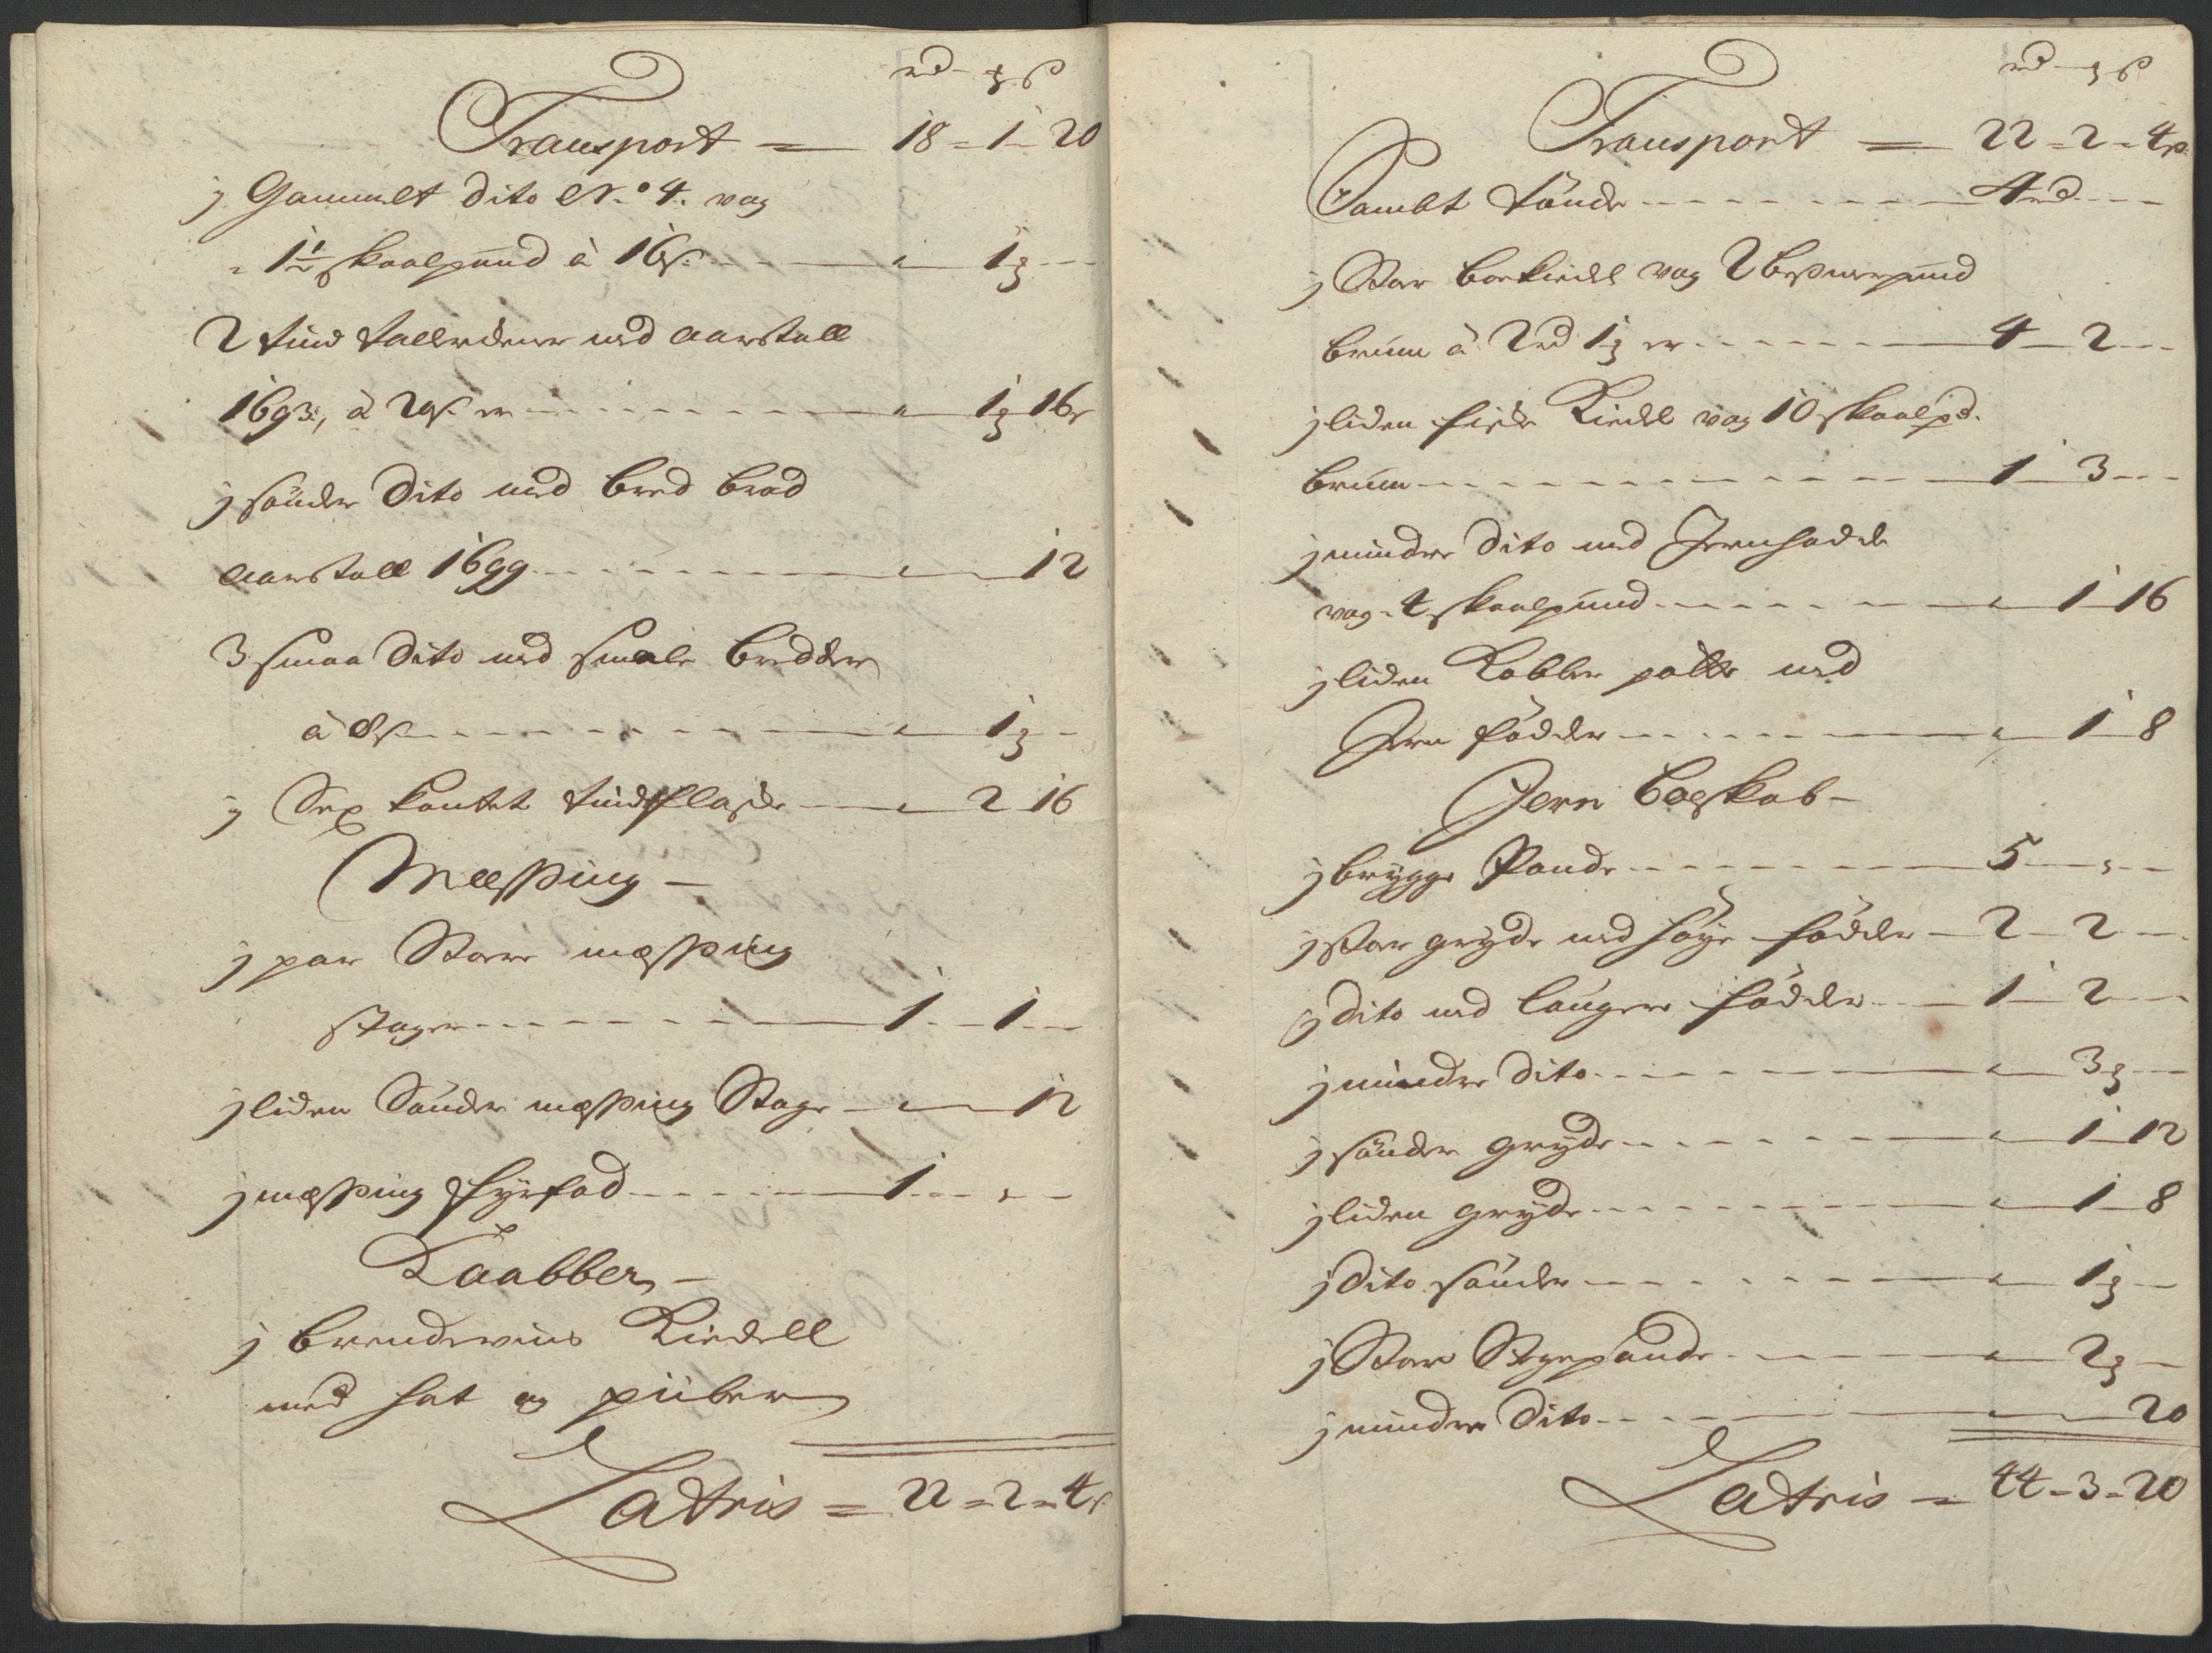 rd - ꝫ ß
Transport = 18 - 1 - 20
j Gammelt dito N.° 4. vog
1½ skaalpund à 16 ß - - - 1ꝫ - -
2 tind tallerckener med aarstall
1693, à 20 ß er - - - 1ꝫ 16ß
j sönder dito med bred brad
aarstall 1699 - - - 12
3 smaa dito med smale bredder
à 8 ß - - - 1ꝫ -
j Sex kantet tindflaske - 2 16
Meßing -
j par Store meßing
stager - - - 1 - 1 - -
j liden Sönder meßing Stage - 12
j meßing fyrfad - - - 1 - - -
Kaabber -
j brendeviins Kiedell
med hat og piiber
Latris = 22 = 2 = 4ß
rd - ꝫ ß
Transport = 22 - 2 - 4ß
Sambt tönde - - - 4 rd - - -
j Stor koekiedel vog 2 bessmerpund
brum à 2 rd 1ꝫ er - - - 4 2 - -
j liden fiske Kiedel vog 10 skaalpd.
brum - - - 1 3 - - -
j mindre dito med Jernhadel
vog 4 skaalpund - - - 1 16
j liden Kobber potte med
Jern födder - - - 1 8
Jern boeskab -
j brygge Pande - - - 5 - - -
j stor gryde med höye födder - 2 - 2 - -
j dito med langere födder - 1 - 2 - -
j mindre dito - - - 3ꝫ - -
j sönder gryde - - - 1 12
j liden gryde - - - 1 8
j dito sönder - - - 1ꝫ -
j Stor Stegepande - - - 2ꝫ -
j mindre dito - - - 20
Latris = 44 - 3 - 20